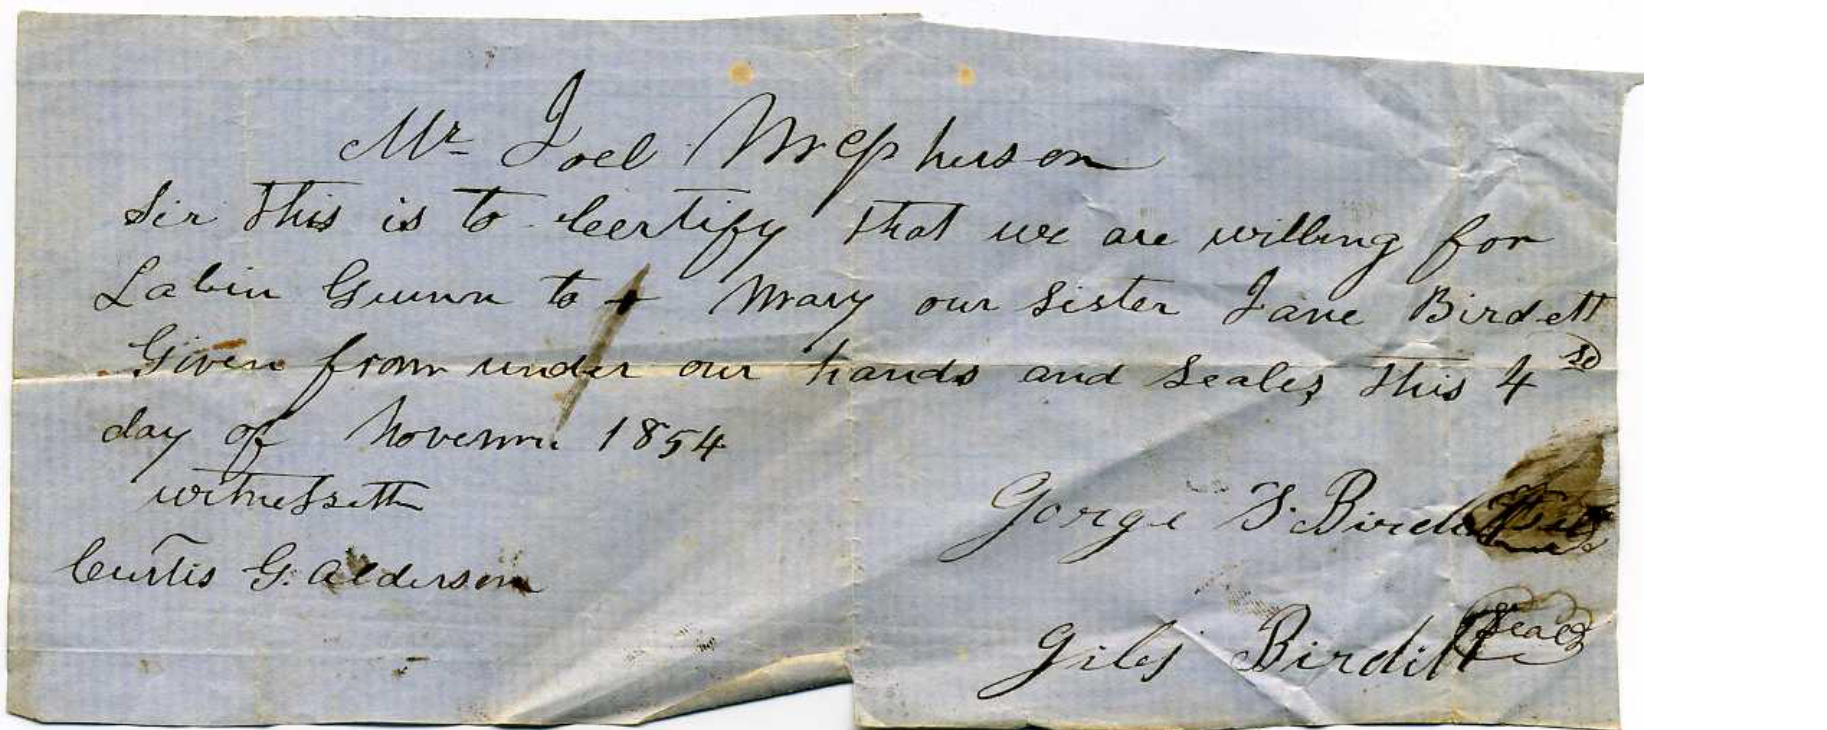 Mr Joel McPherson
Sir This is to Certify that we are willing for
Labin Gwinn to Mary our Sister Jane Birdett
Given from under our hands and Seales this 4
day of 1854
witnesseth
Curtis G. Alderson
Gorge Birdett
Giles Birditt Seal